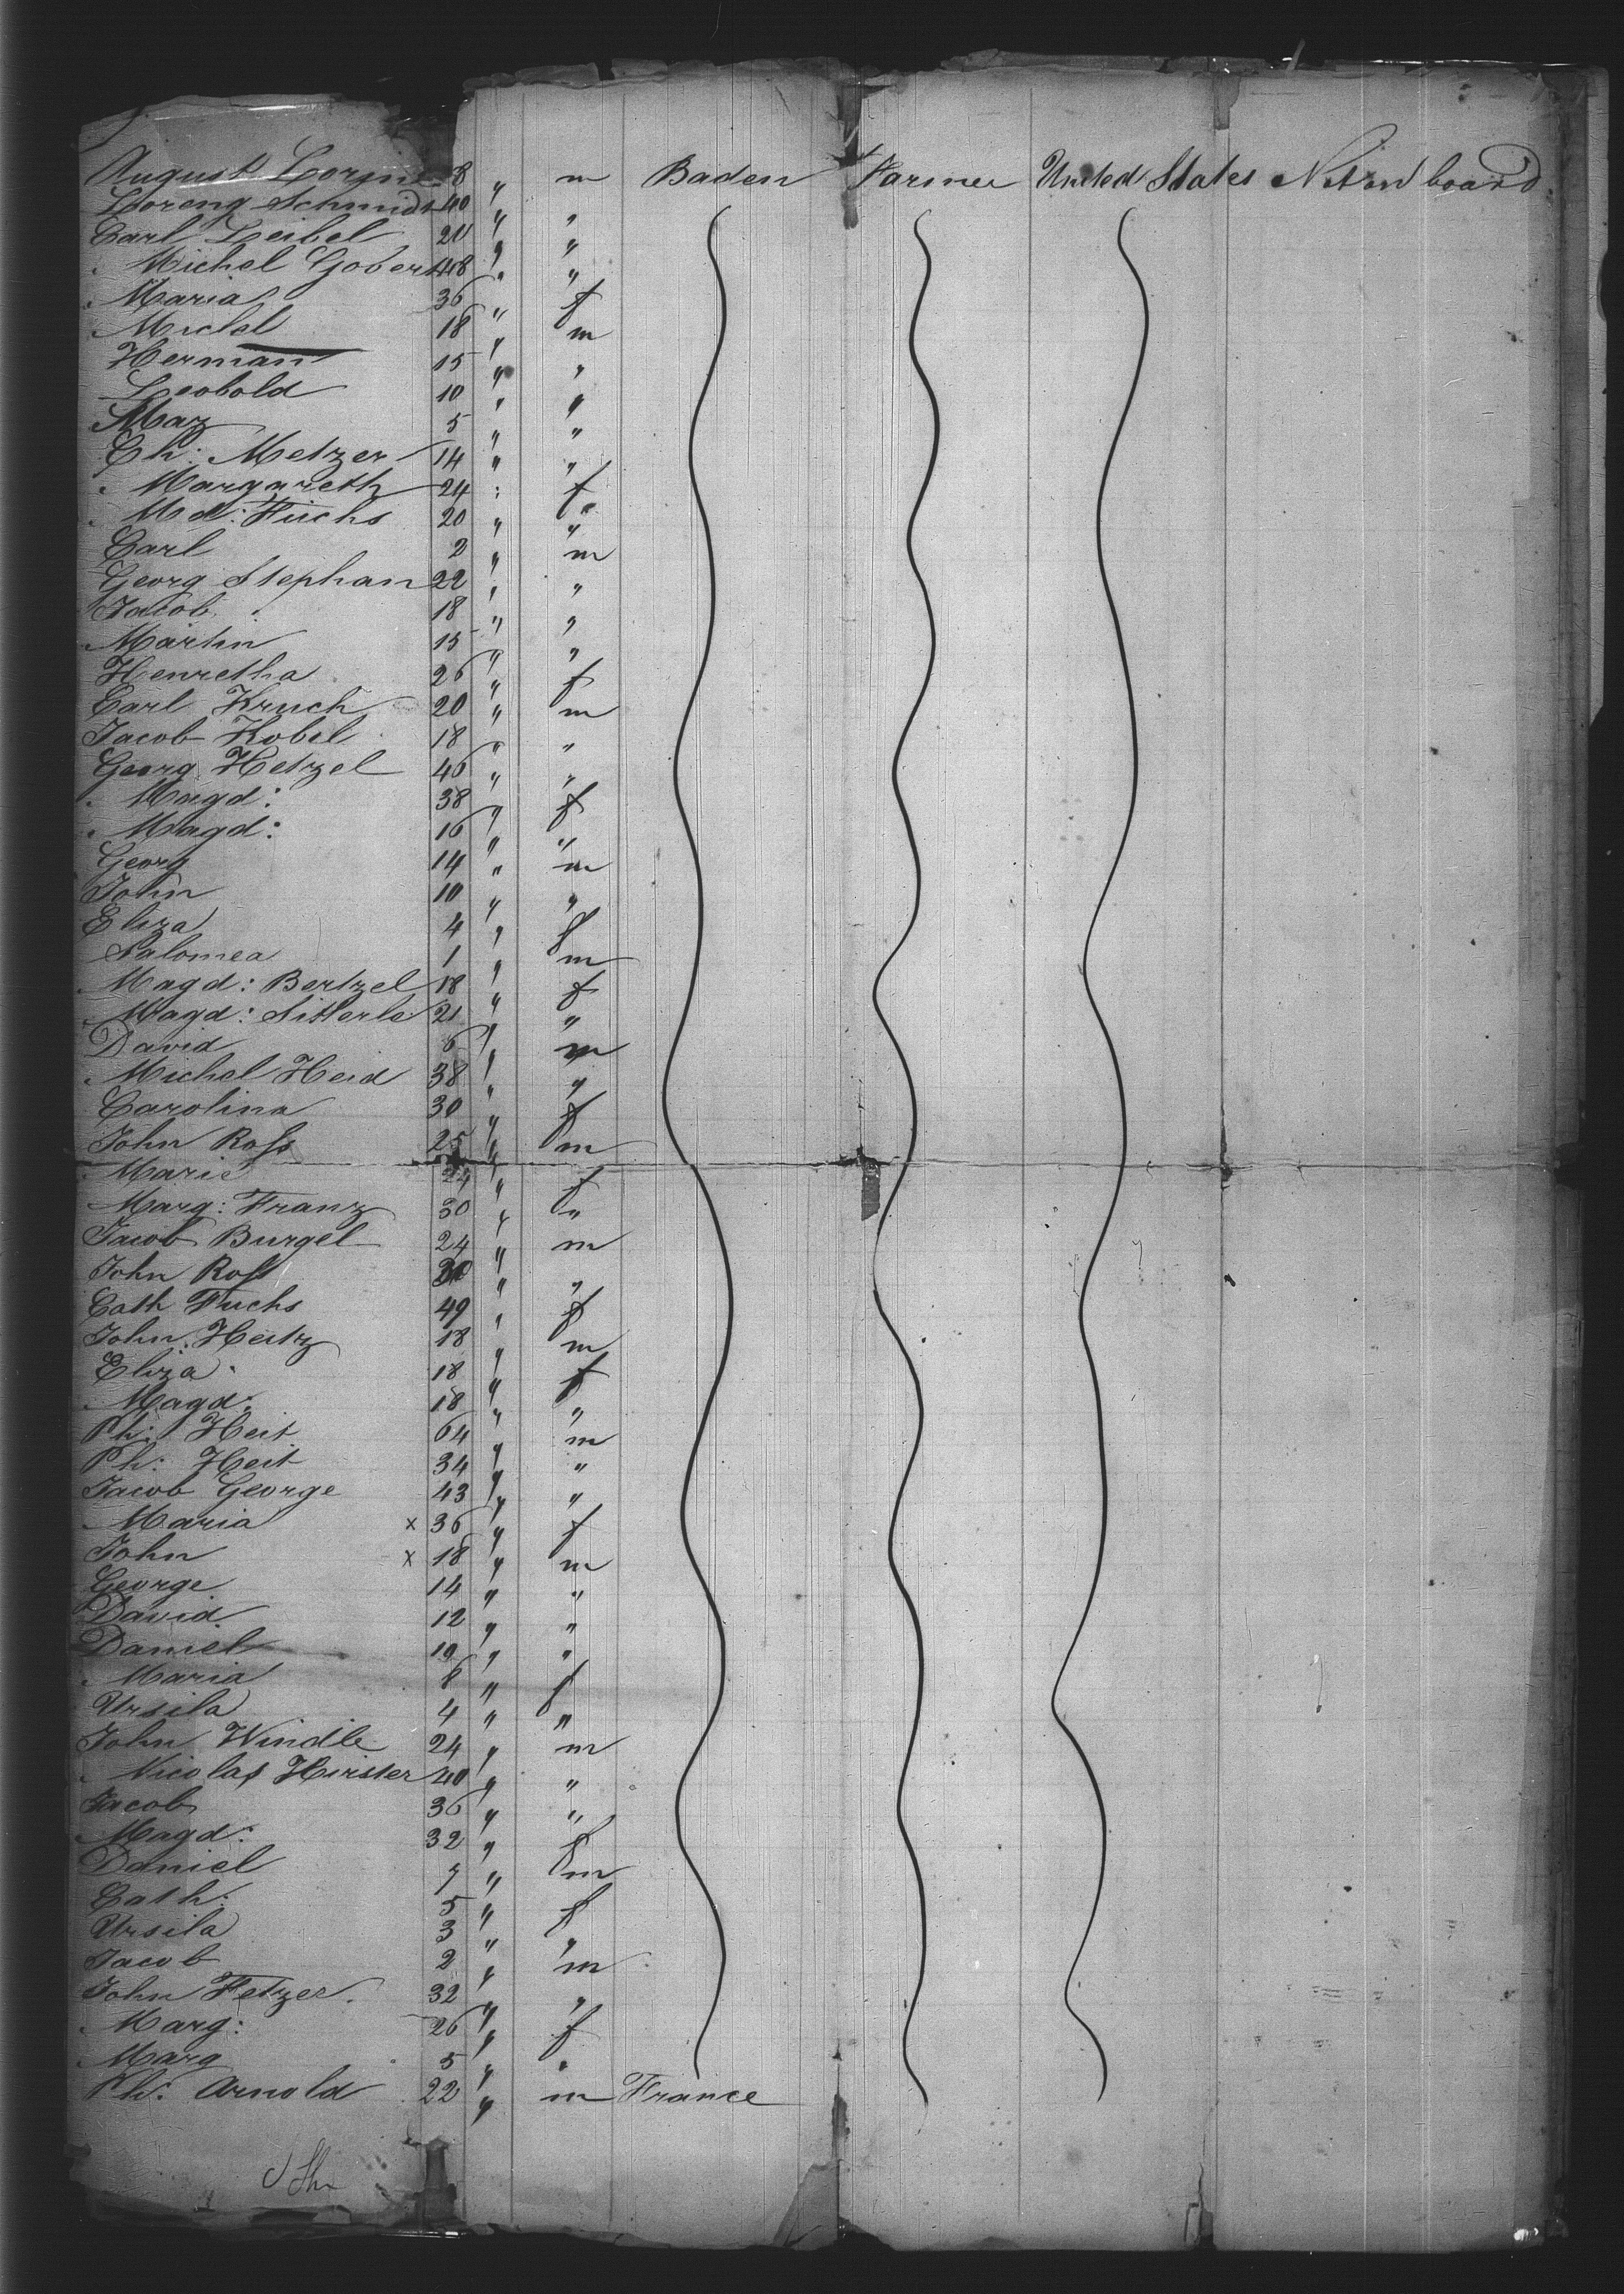 August 8 " m Baden Farmer United States Not on board
Lorenz Schmidt 40 " "
Carl Leibel 20 " "
Michel Gobert 48 " "
Maria 36 " f
Michel 18 " m
Herman 15 " "
Leobold 10 " "
Max 5 " "
Ch: Metzer 14 " "
Margareth 24 " f
Md: Fuchs 20 " "
Carl 2 " m
Georg Stephan 22 " "
Jacob 18 " "
Martin 15 " "
Henretha 26 " f
Carl Kruch 20 " m
Jacob Kobel 18 " "
Georg Hetzel 46 " "
Magd: 38 " f
Magd: 16 " "
Georg 14 " m
John 10 " "
Eliza 4 " f
Salomea 1 " m
Magd: Bertzel 18 " f
Magd: Sitterle 21 " "
David 6 " m
Michel Heid 38 " "
Carolina 30 " f
John Ross 25 " m
Marie 24 " f
Marg: Franz 30 " "
Jacob Burgel 24 " m
John Ross " "
Cath Fuchs 49 " f
John Heitz 18 " m
Eliza 18 " f
Magd: 18 " "
Ph: Heit 64 " m
Ph: Heit 34 " "
Jacob George 43 " "
Maria x 36 " f
John x 18 " m
George 14 " "
David 12 " "
Daniel 10 " "
Maria 8 " f
Ursila 4 " "
John Windle 24 " m
Nicolas Hirster 40 " "
Jacob 36 " "
Magd: 32 " f
Daniel 7 " m
Cath: 5 " f
Ursila 3 " "
Jacob 2 " m
John Fetzer 32 " "
Marg: 26 " f
Marg 5 " "
Ph: Arnold 22 " m France